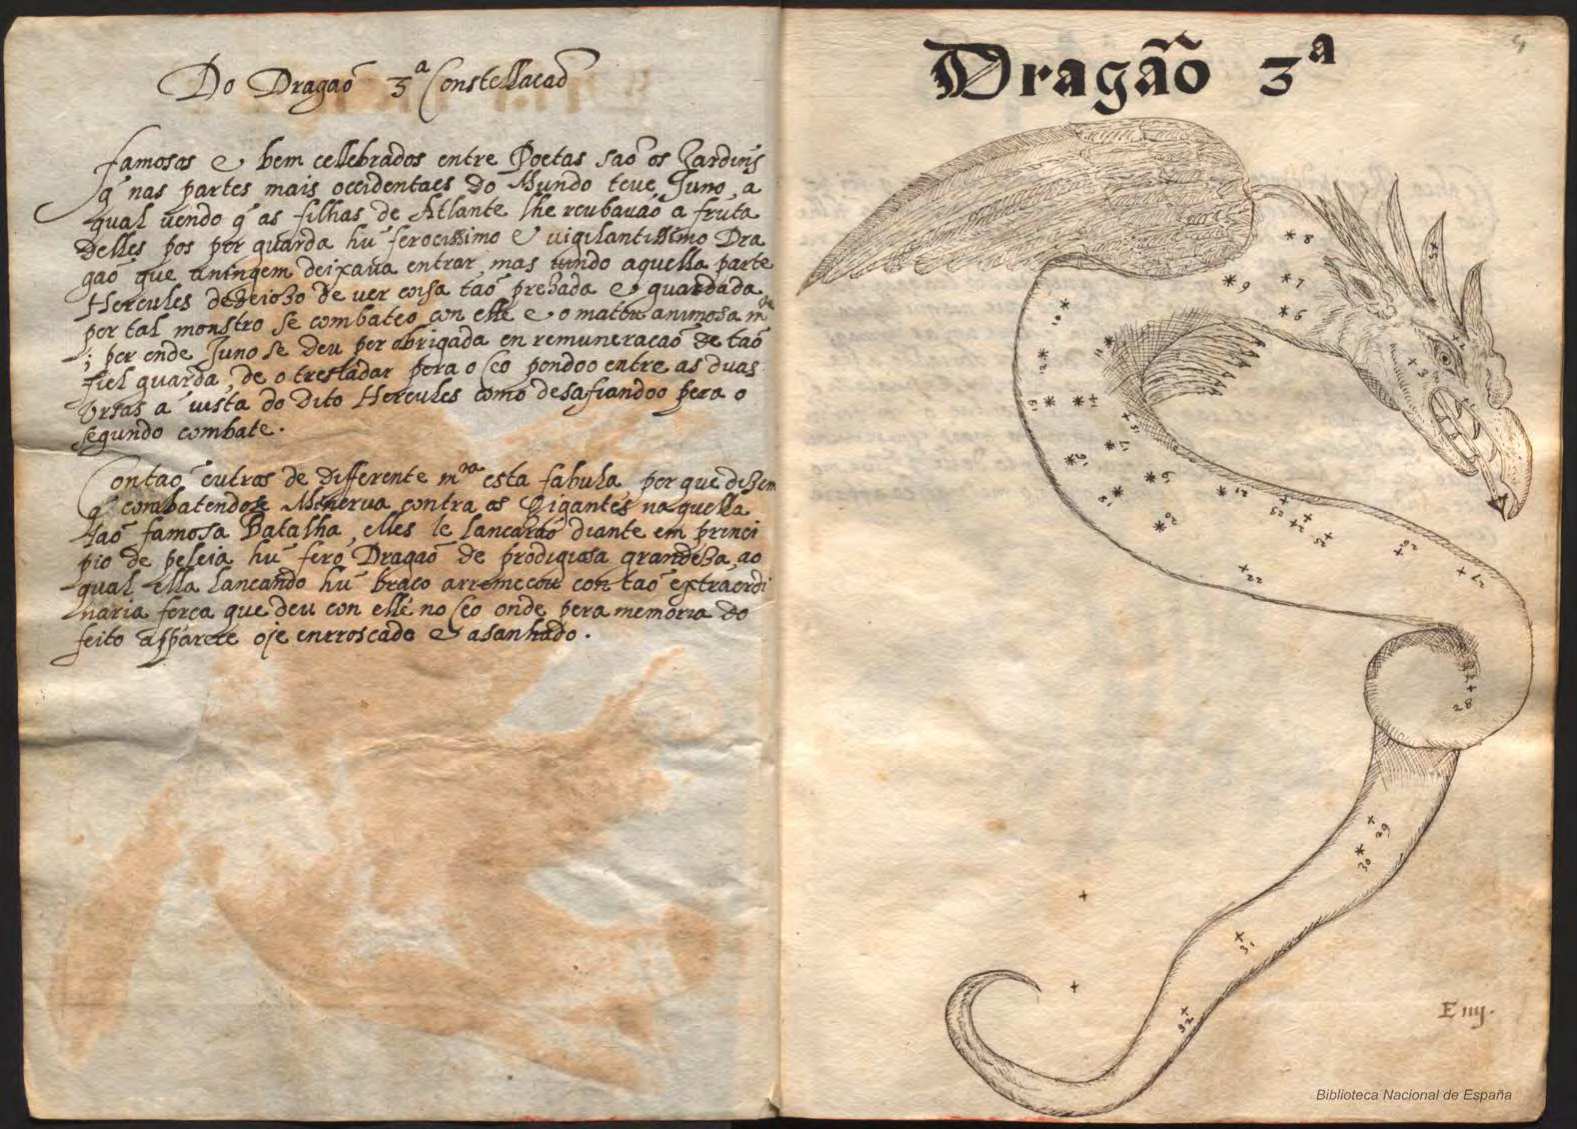 Do Dragaõ 3ª Constellacaõ
famosos e bem cellebrados entre Poetas saõ os Jardiñs
q̃ nas partes mais occidentaes do Mundo teve Juno, a
qual vendo q̃ as filhas de Atlante lhe roubavaõ a fruta
delles pos por guarda hũ ferocissimo e vigilantissimo Dra
gaõ que aningem deixava entrar, mas aquella parte
Hercules de ver coisa taõ prezada e guardada
por tal monstro se combateo con elle e o matou animosa mte
; por onde Juno se deu por obrigada en remuneracaõ de taõ
fiel guarda, de o tresladar pera o Ceo pondoo entre as duas
Ursas a vista do dito Hercules como desafiandoo pera o
segundo combate.
Contaõ outros de differente mrª esta fabula por que dizem
q̃ combatendose Minerva contra os Gigantes naquella
taõ famosa Batalha, elles le lancaraõ diante em princi
pio de peleia hũ fero Dragaõ de prodigiosa grandeza, ao
qual ella lancando hũ braco arremecou con taõ extraordi
naria forca que deu con elle no Ceo onde pera memoria do
feito apparece oje enrroscado e asanhado.
Dragaõ 3ª
8
9
7
6
5
2
3
10
11
12
13
14
15
17
16
19
18
20
21
23
24
25
26
22
27
28
29
30
31
32
E iiij.
Biblioteca Nacional de España